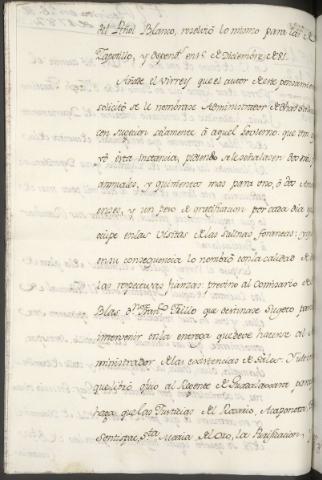 del Peñol Blanco, resolvió lo mismo para las de
Zapotillo, y dependtes en 15 de Diciembre de 81.
Añade el Virrey que el autor de este pensamiento
solicitó se le nombrase Administrador de
con sujecion solamente á aquel Govierno: que
esta instancia, pidiendo se le señalasen dos mil
anuales, y quinientos mas para uno, ó dos
y un peso de gratificacion por cada dia que
ocupe en las visitas de las Salinas foraneas; y que
en su consequencia lo nombró con la calidad de
las respectivas fianzas: previno al Comisario de
Blas Dn Franco Trillo que destinase Sugeto para
intervenir en la entrega que debe hacerse al
ministrador de las existencias de Sales. Y
que libró oficio al Regente de Guadalaxara para que
haga que las Justicias del Rosario, Acaponeta,
Sentispac, Sta Maria del Oro, la Purificacion,